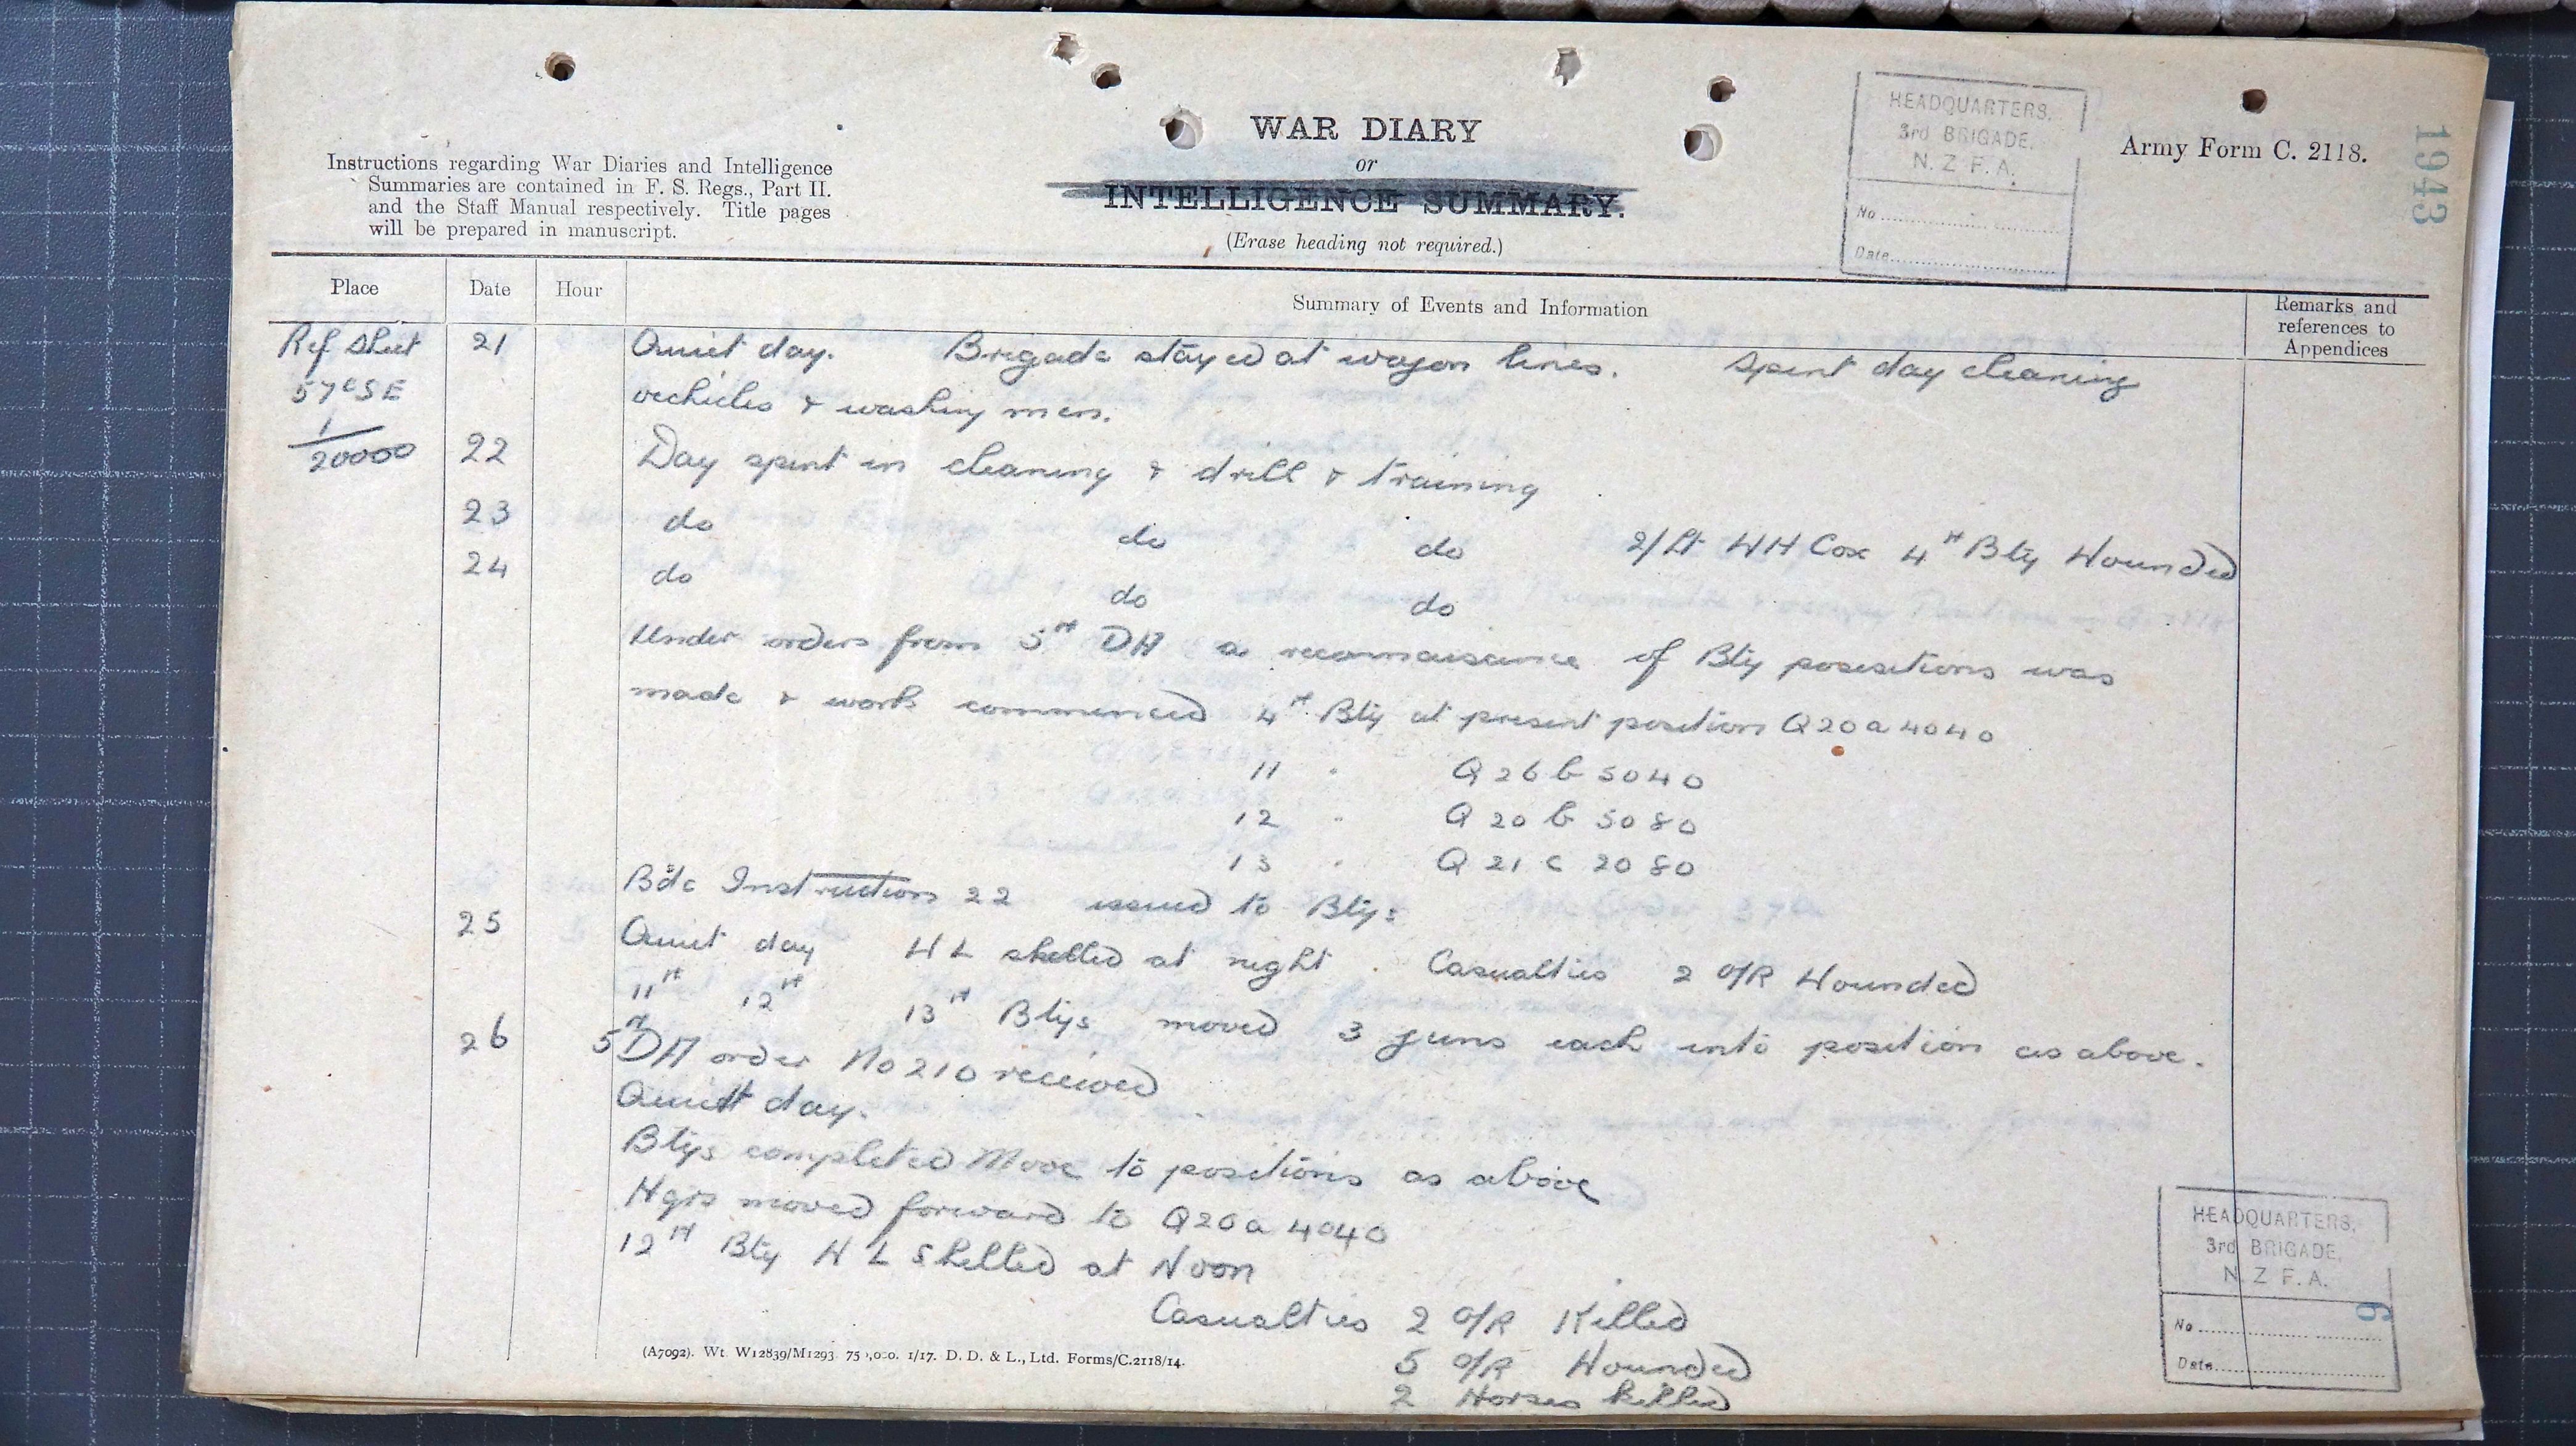 HEADQUARTERS,
3rd BRIGADE,
N. Z. F. A.
No
Date
Army Form C. 2118.
1943
WAR DIARY
or
INTELLIGENCE SUMMARY.
(Erase heading not required.)
Instructions regarding War Diaries and Intelligence
Summaries are contained in F. S. Regs., Part II.
and the Staff Manual respectively. Title pages
will be prepared in manuscript.
Place Date Hour Summary of Events and Information Remarks and references to Appendices
Ref Sheet 21 Quiet day. Brigade stayed at wagon lines. Spent day cleaning
57c SE vechicles & washing men.
1/20000 22 Day spent in cleaning & drill & training
23 do do do 2/Lt WH Cox 4th Bty Wounded
24 do do do
Under orders from 5th DA a reconnaisance of Bty posisitions was
made & work commenced 4th Bty at present position Q20a 4040
11 " Q 26 b 5040
12 " Q 20 b 5080
13 " Q 21 c 2080
Bde Instruction 22 issued to Btys
25 Quiet day W L shelled at night. Casualties 2 O/R Wounded
11th 12th 13th Btys moved 3 guns each into position as above.
26 5th DA order No 210 received
Quiet day.
Btys completed Move to positions as above
Hqrs moved forward to Q20a 4040
12th Bty W L Shelled at Noon
Casualties 2 O/R Killed
5 O/R Wounded
2 Horses killed
(A7092). Wt. W12839/M1293. 75 ,000. 1/17. D. D. & L., Ltd. Forms/C.2118/14.
HEADQUARTERS,
3rd BRIGADE,
N. Z. F. A.
6
No
Date